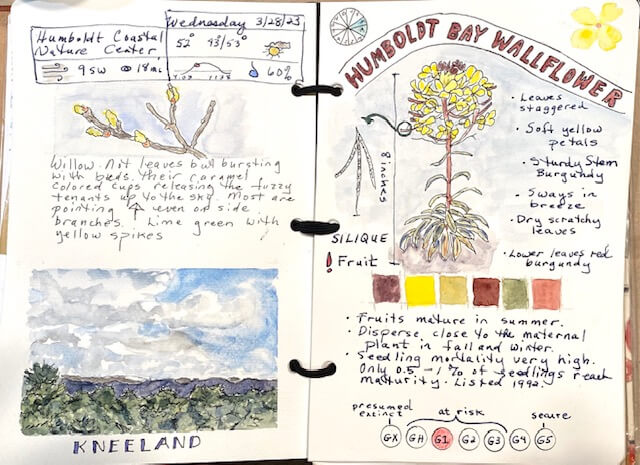 Humboldt Coastal
Nature Center
Wednesday 3/28/23
52° 43/53°
9 SW 18mi
7:07 60%
Willow. Not leaves but bursting
with buds. Their caramel
colored cups releasing the fuzzy
tenants up to the sky. Most are
pointing ↑ even on side
branches. Lime green with
yellow spikes
KNEELAND
HUMBOLDT BAY WALLFLOWER
• Leaves
staggered
• Soft yellow
petals
• Sturdy Stem
Burgundy
• Sways in
breeze
• Dry scratchy
leaves
• Lower leaves red
burgundy
8 inches
SILIQUE
! Fruit
• Fruits mature in summer.
• Disperse close to the maternal
plant in fall and winter.
• Seedling mortality very high.
Only 0.5-1% of seedlings reach
maturity. Listed 1992.
presumed
extinct
at risk
secure
GX GH G1 G2 G3 G4 G5